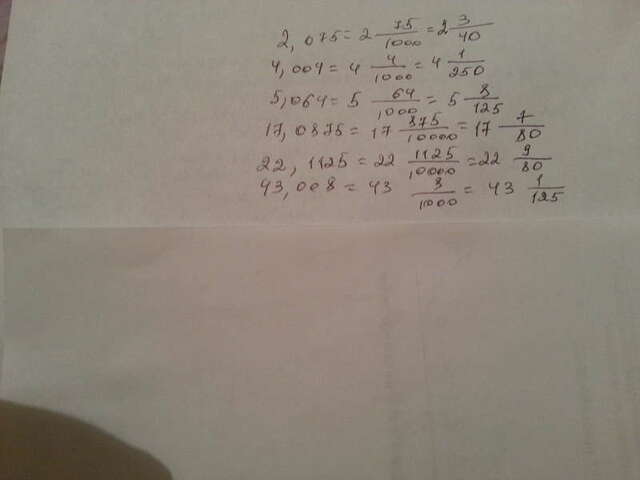 2,075 = 2 75/1000 = 2 3/40
4,004 = 4 4/1000 = 4 1/250
5,064 = 5 64/1000 = 5 8/125
17,0875 = 17 875/10000 = 17 7/80
22,1125 = 22 1125/10000 = 22 9/80
43,008 = 43 8/1000 = 43 1/125